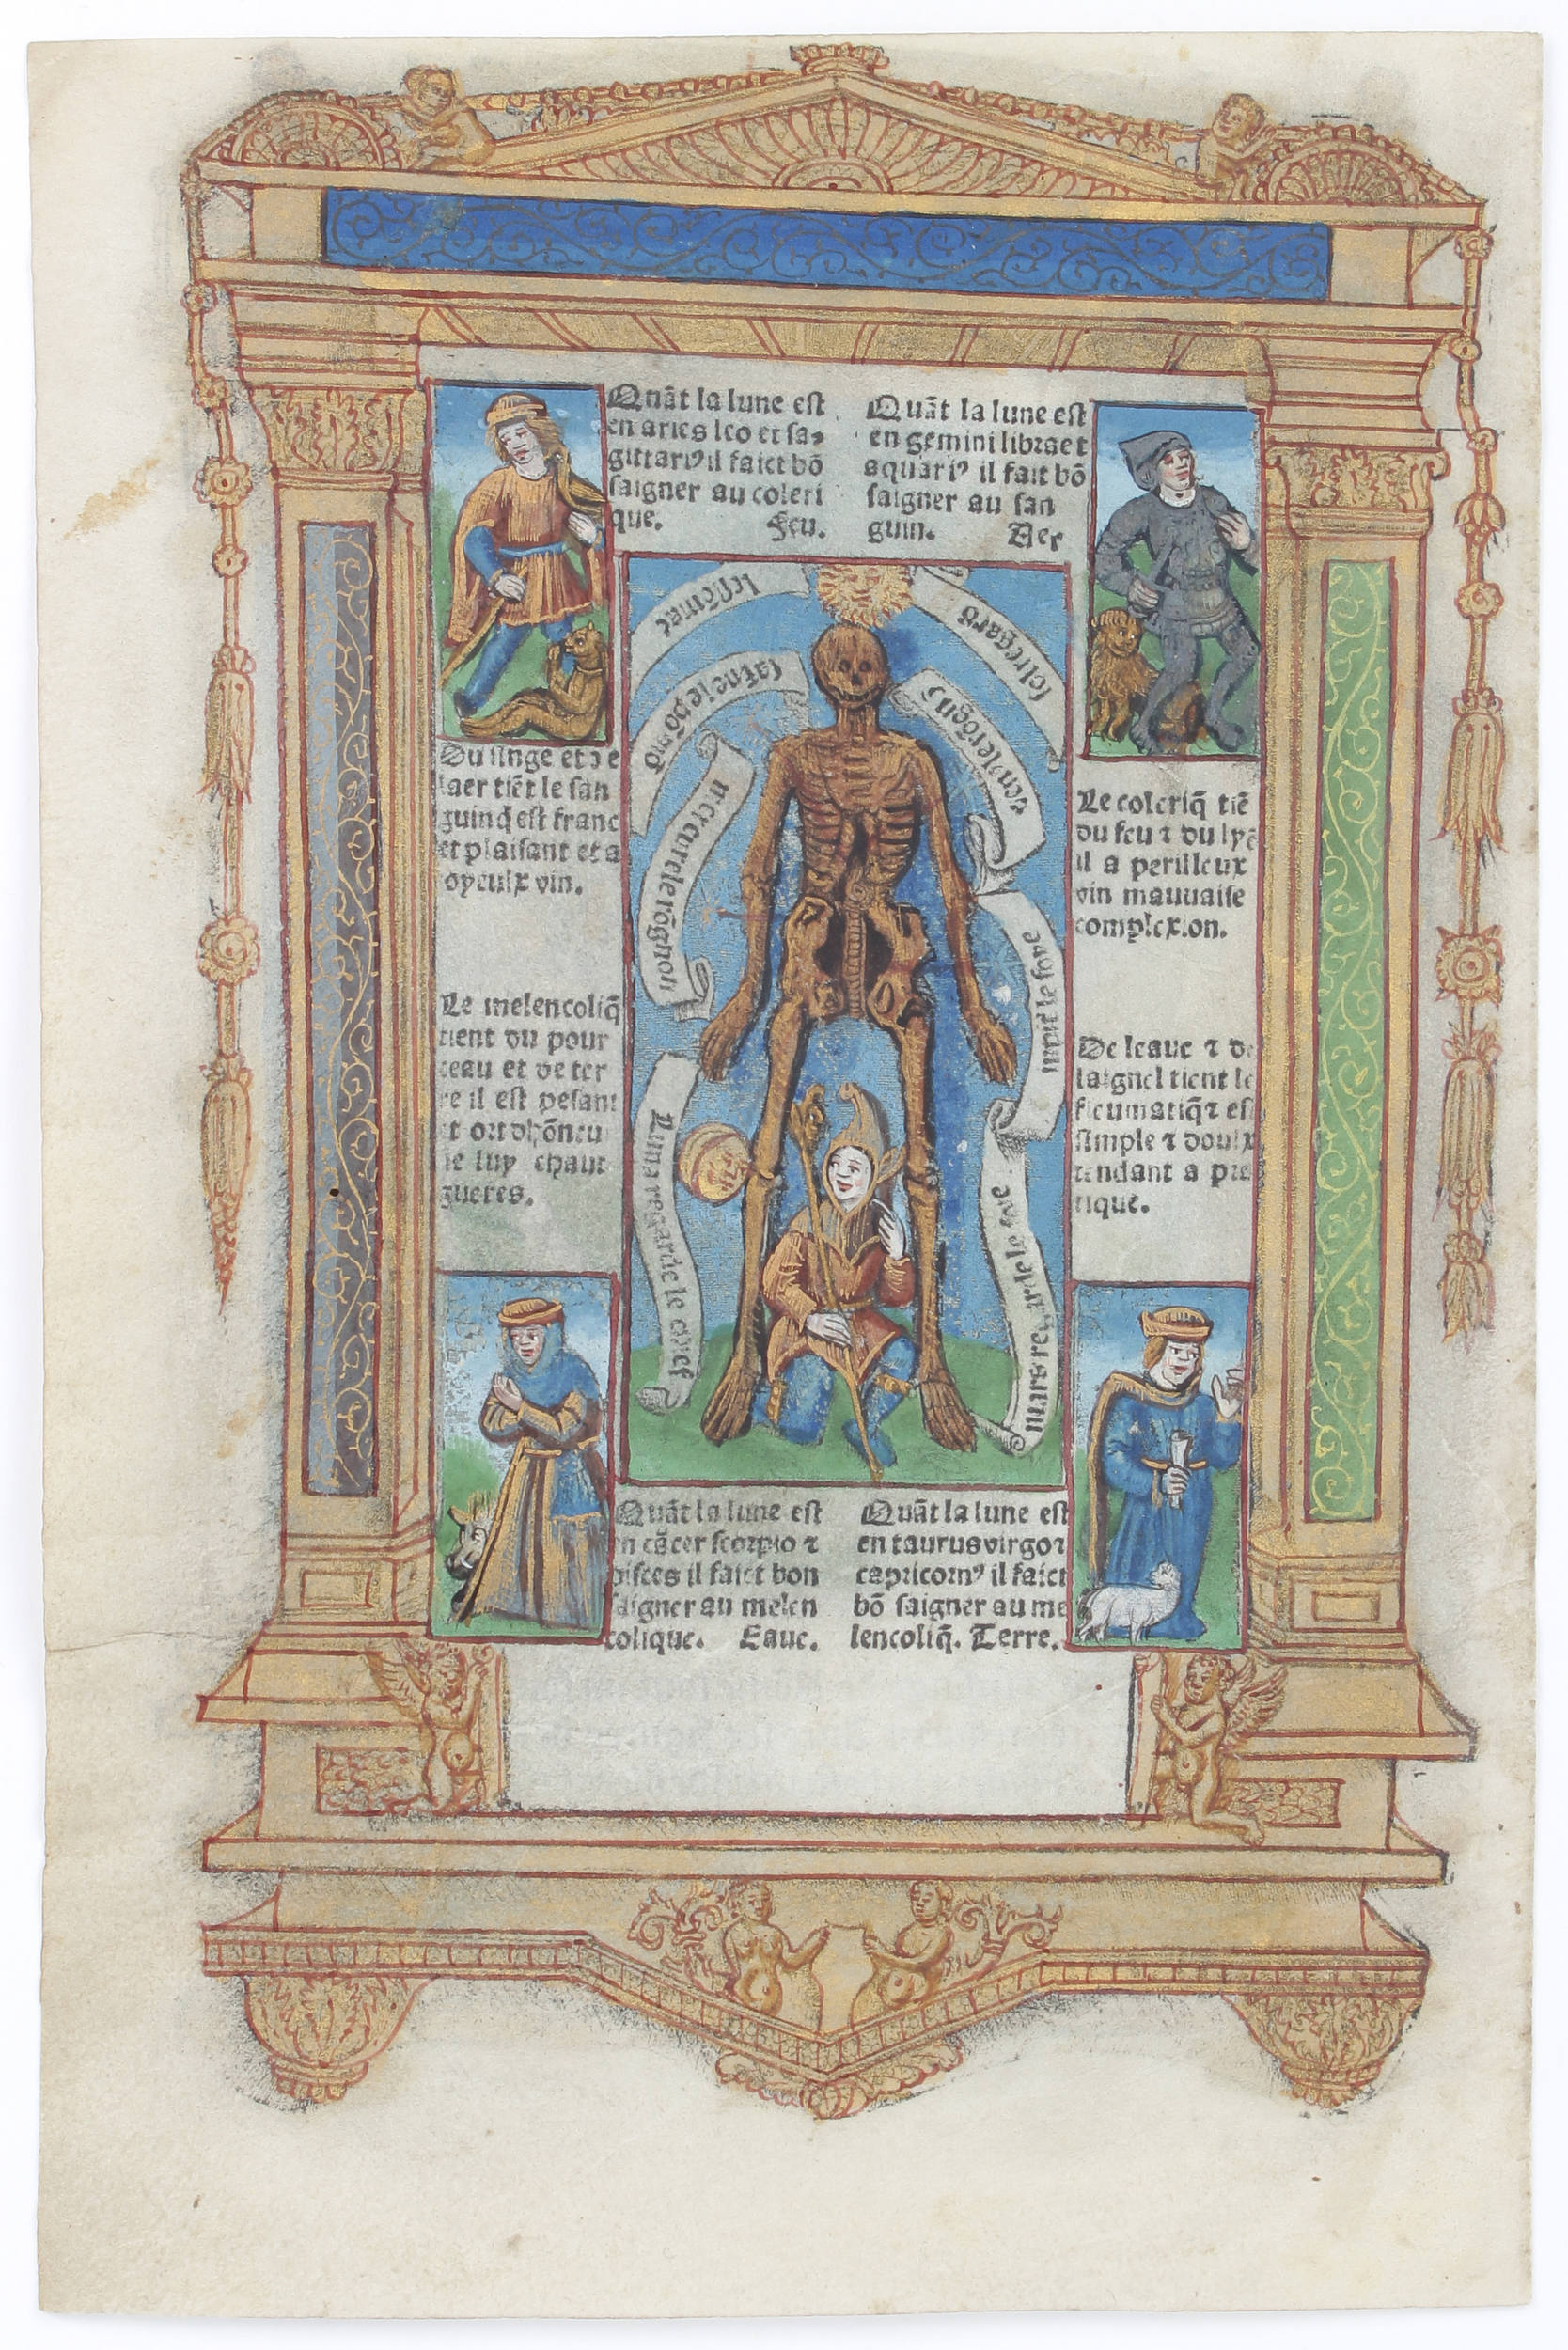 Quãt la lune est
en aries leo et sa⸗
gittariꝰ il faict bõ
saigner au coleri
que. Feu.
Quãt la lune est
en gemini libra et
aquariꝰ il fait bõ
saigner au san
guin. Aer
Du singe et de
laer tiẽt le san
guin q̃ est franc
et plaisant et a
oyeulx vin.
Le coleriq̃ tiẽ
du feu ⁊ du lyõ
il a perilleux
vin mauuaise
complexion.
Le melencoliq̃
tient du pour
ceau et de ter
re il est pesant
et ort dhõneu
ne luy chaut
gueres.
De leaue ⁊ de
laignel tient le
fleumatiq̃ ⁊ est
simple ⁊ doulx
tendant a pra
tique.
lestomac
sol regard
saturne
venꝰ le rõgnõ
mercure le rõgnon
iupit le foye
Luna regarde le chief
mars regarde le foye
Quãt la lune est
en cãcer scorpio ⁊
pisces il faict bon
saigner au melen
colique. Eaue.
Quãt la lune est
en taurus virgo ⁊
capricornꝰ il faict
bõ saigner au me
lencoliq̃. Terre.